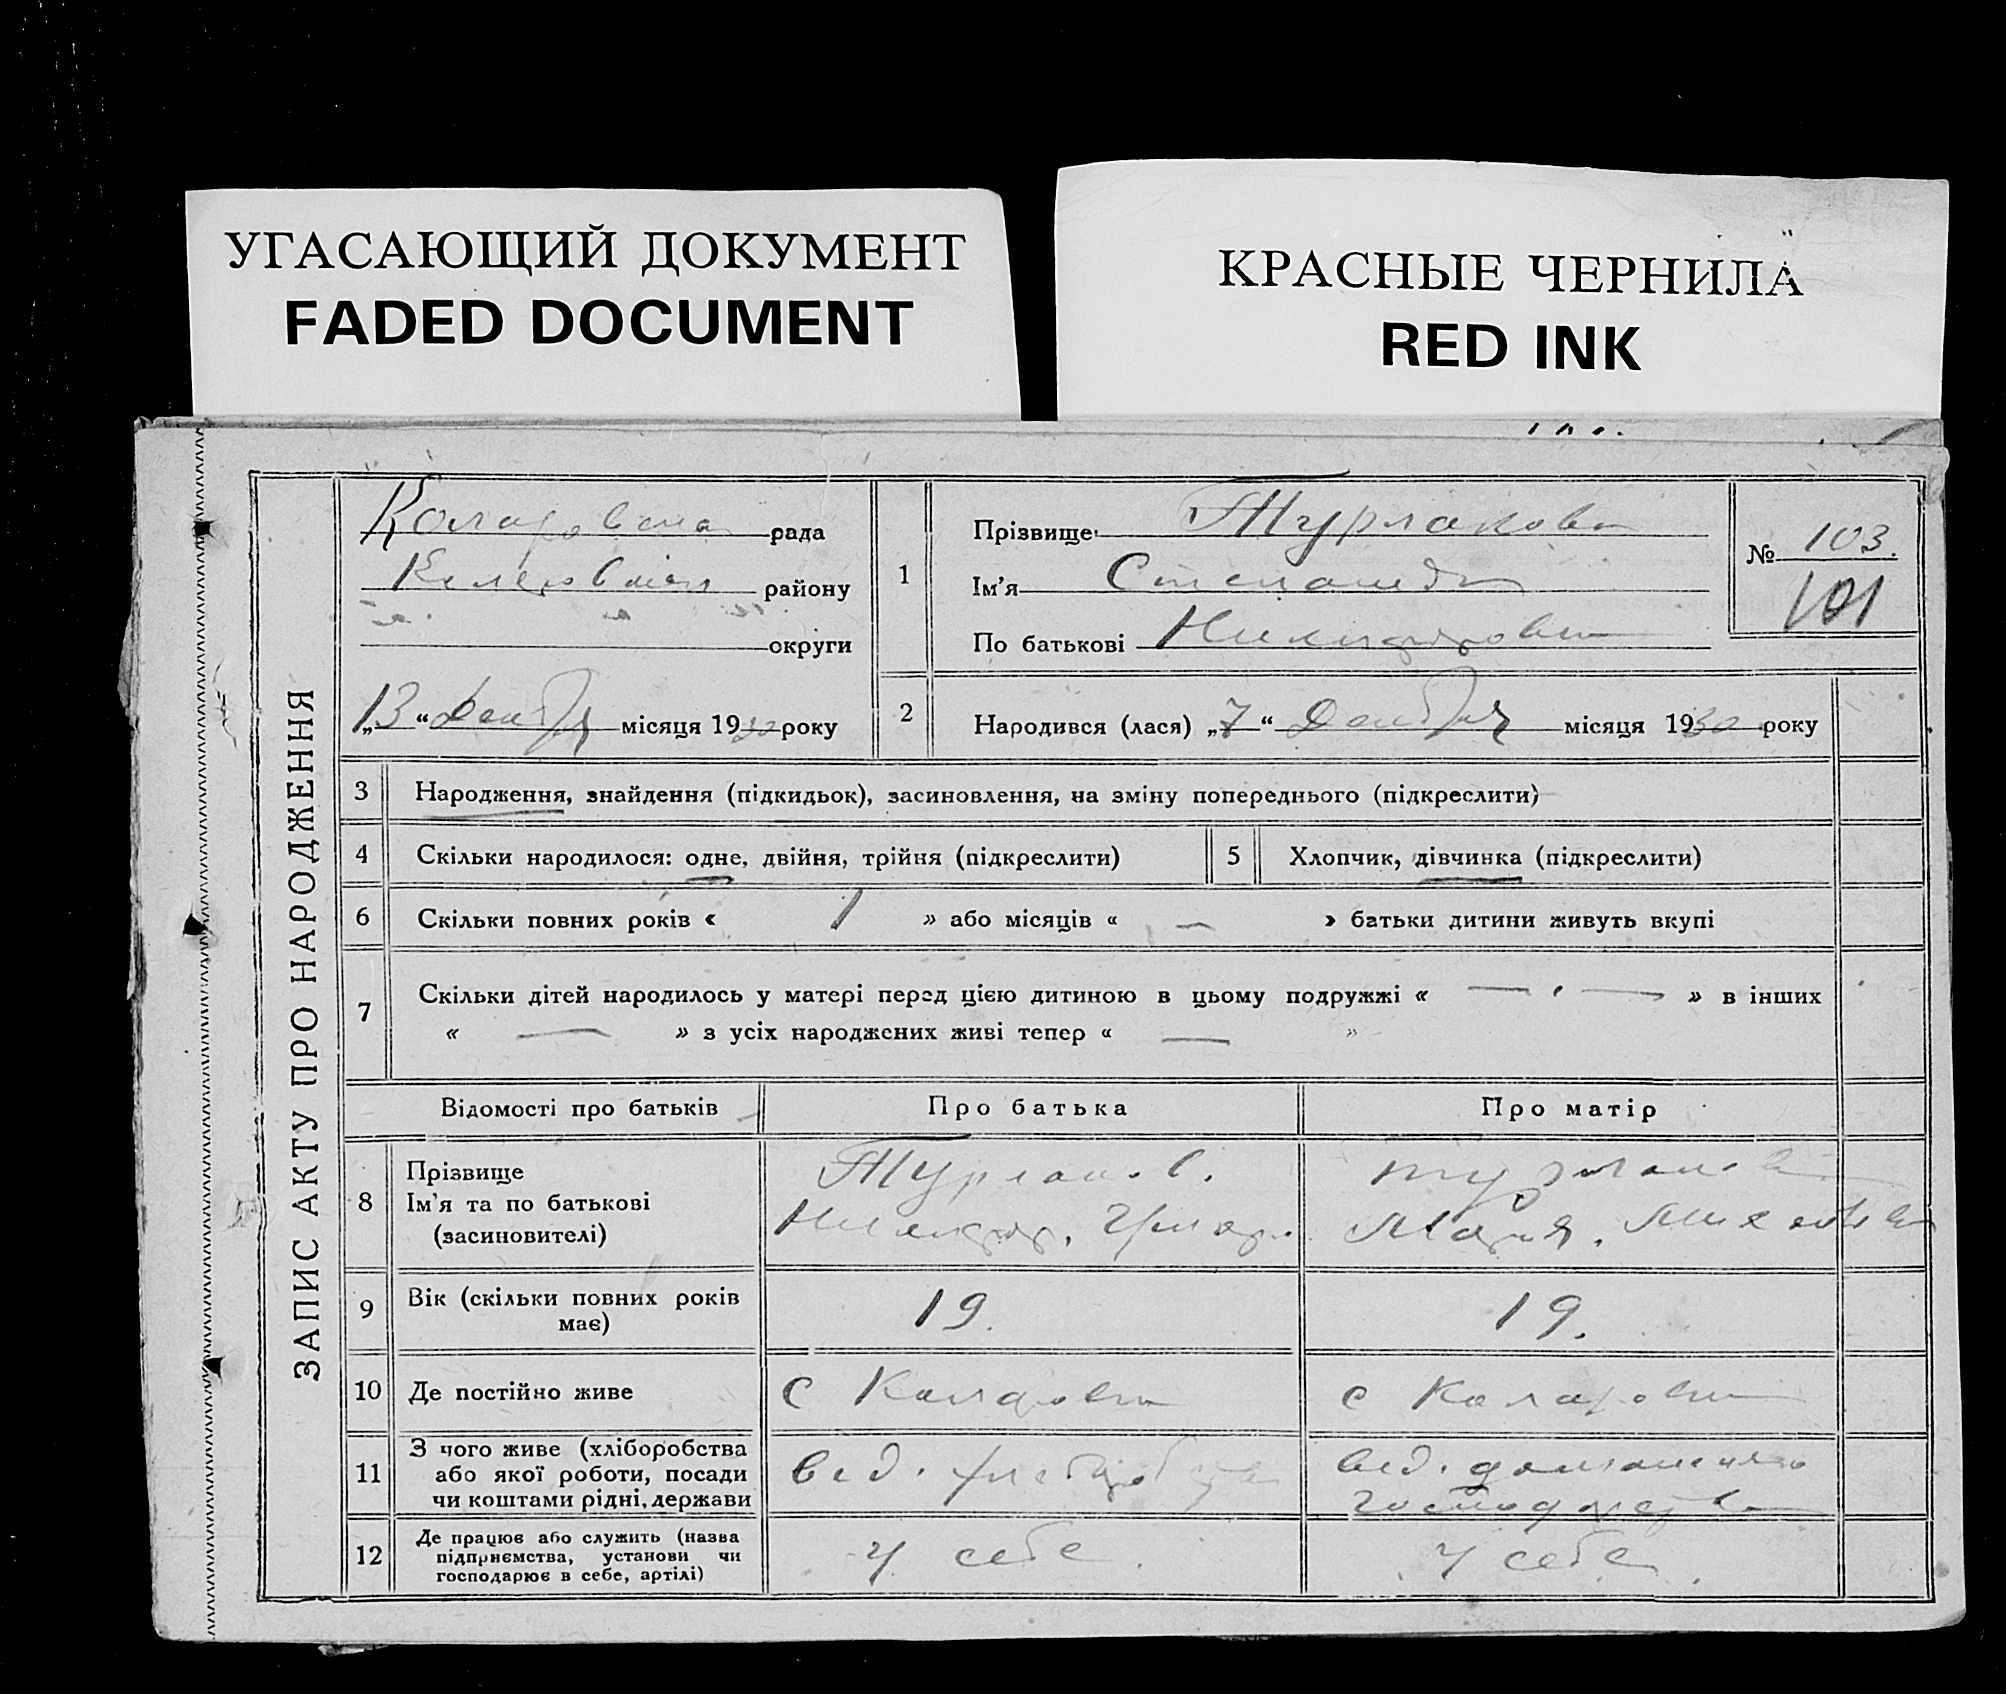 УГАСАЮЩИЙ ДОКУМЕНТ
FADED DOCUMENT
КРАСНЫЕ ЧЕРНИЛА
RED INK
ЗАПИС АКТУ ПРО НАРОДЖЕННЯ
рада
району
округи
„13“ місяця 1930 року
1 Прізвище Турлакова
Ім'я Степанида
По батькові
№ 103.
101
2 Народився (лася) „7“ Декабря місяця 1930 року
3 Народження, знайдення (підкидьок), засиновлення, на зміну попереднього (підкреслити)
4 Скільки народилося: одне, двійня, трійня (підкреслити)
5 Хлопчик, дівчинка (підкреслити)
6 Скільки повних років « 1 » або місяців « — » батьки дитини живуть вкупі
7 Скільки дітей народилось у матері перед цією дитиною в цьому подружжі « — » в інших
« — » з усіх народжених живі тепер « — »
Відомості про батьків Про батька Про матір
8 Прізвище
Ім'я та по батькові
(засиновителі)
Турлаков.
Мария.
9 Вік (скільки повних років
має)
19.
19.
10 Де постійно живе
с
с Коларовка
11 З чого живе (хліборобства
або якої роботи, посади
чи коштами рідні, держави
вед.
вед. домашнего
господарства
12 Де працює або служить (назва
підприємства, установи чи
господарює в себе, артілі)
у себе.
у себе.